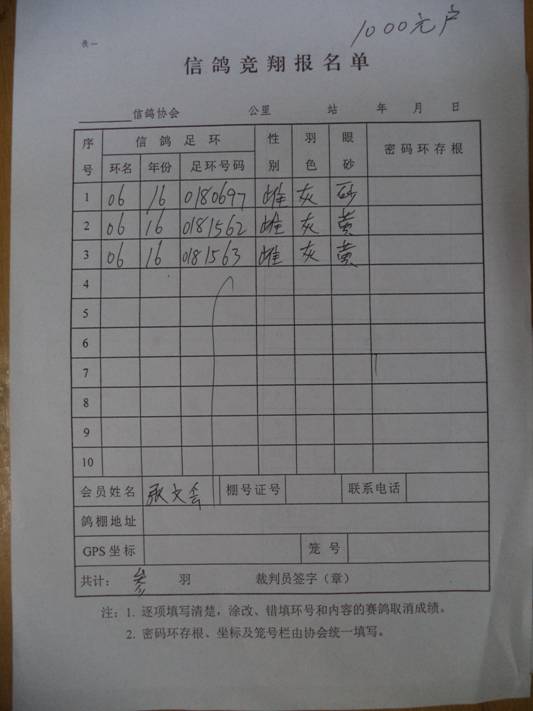 表一
1000元户
信鸽竞翔报名单
信鸽协会 公里 站 年 月 日
序号 信鸽足环 性别 羽色 眼砂 密码环存根
环名 年份 足环号码
1 06 16 0180697 雌 灰 砂
2 06 16 0181562 雌 灰 黄
3 06 16 0181563 雌 灰 黄
4
5
6
7
8
9
10
会员姓名 张文会 棚号证号 联系电话
鸽棚地址
GPS坐标 笼号
共计： 叁 羽 裁判员签字（章）
注：1. 逐项填写清楚，涂改、错填环号和内容的赛鸽取消成绩。
2. 密码环存根、坐标及笼号栏由协会统一填写。